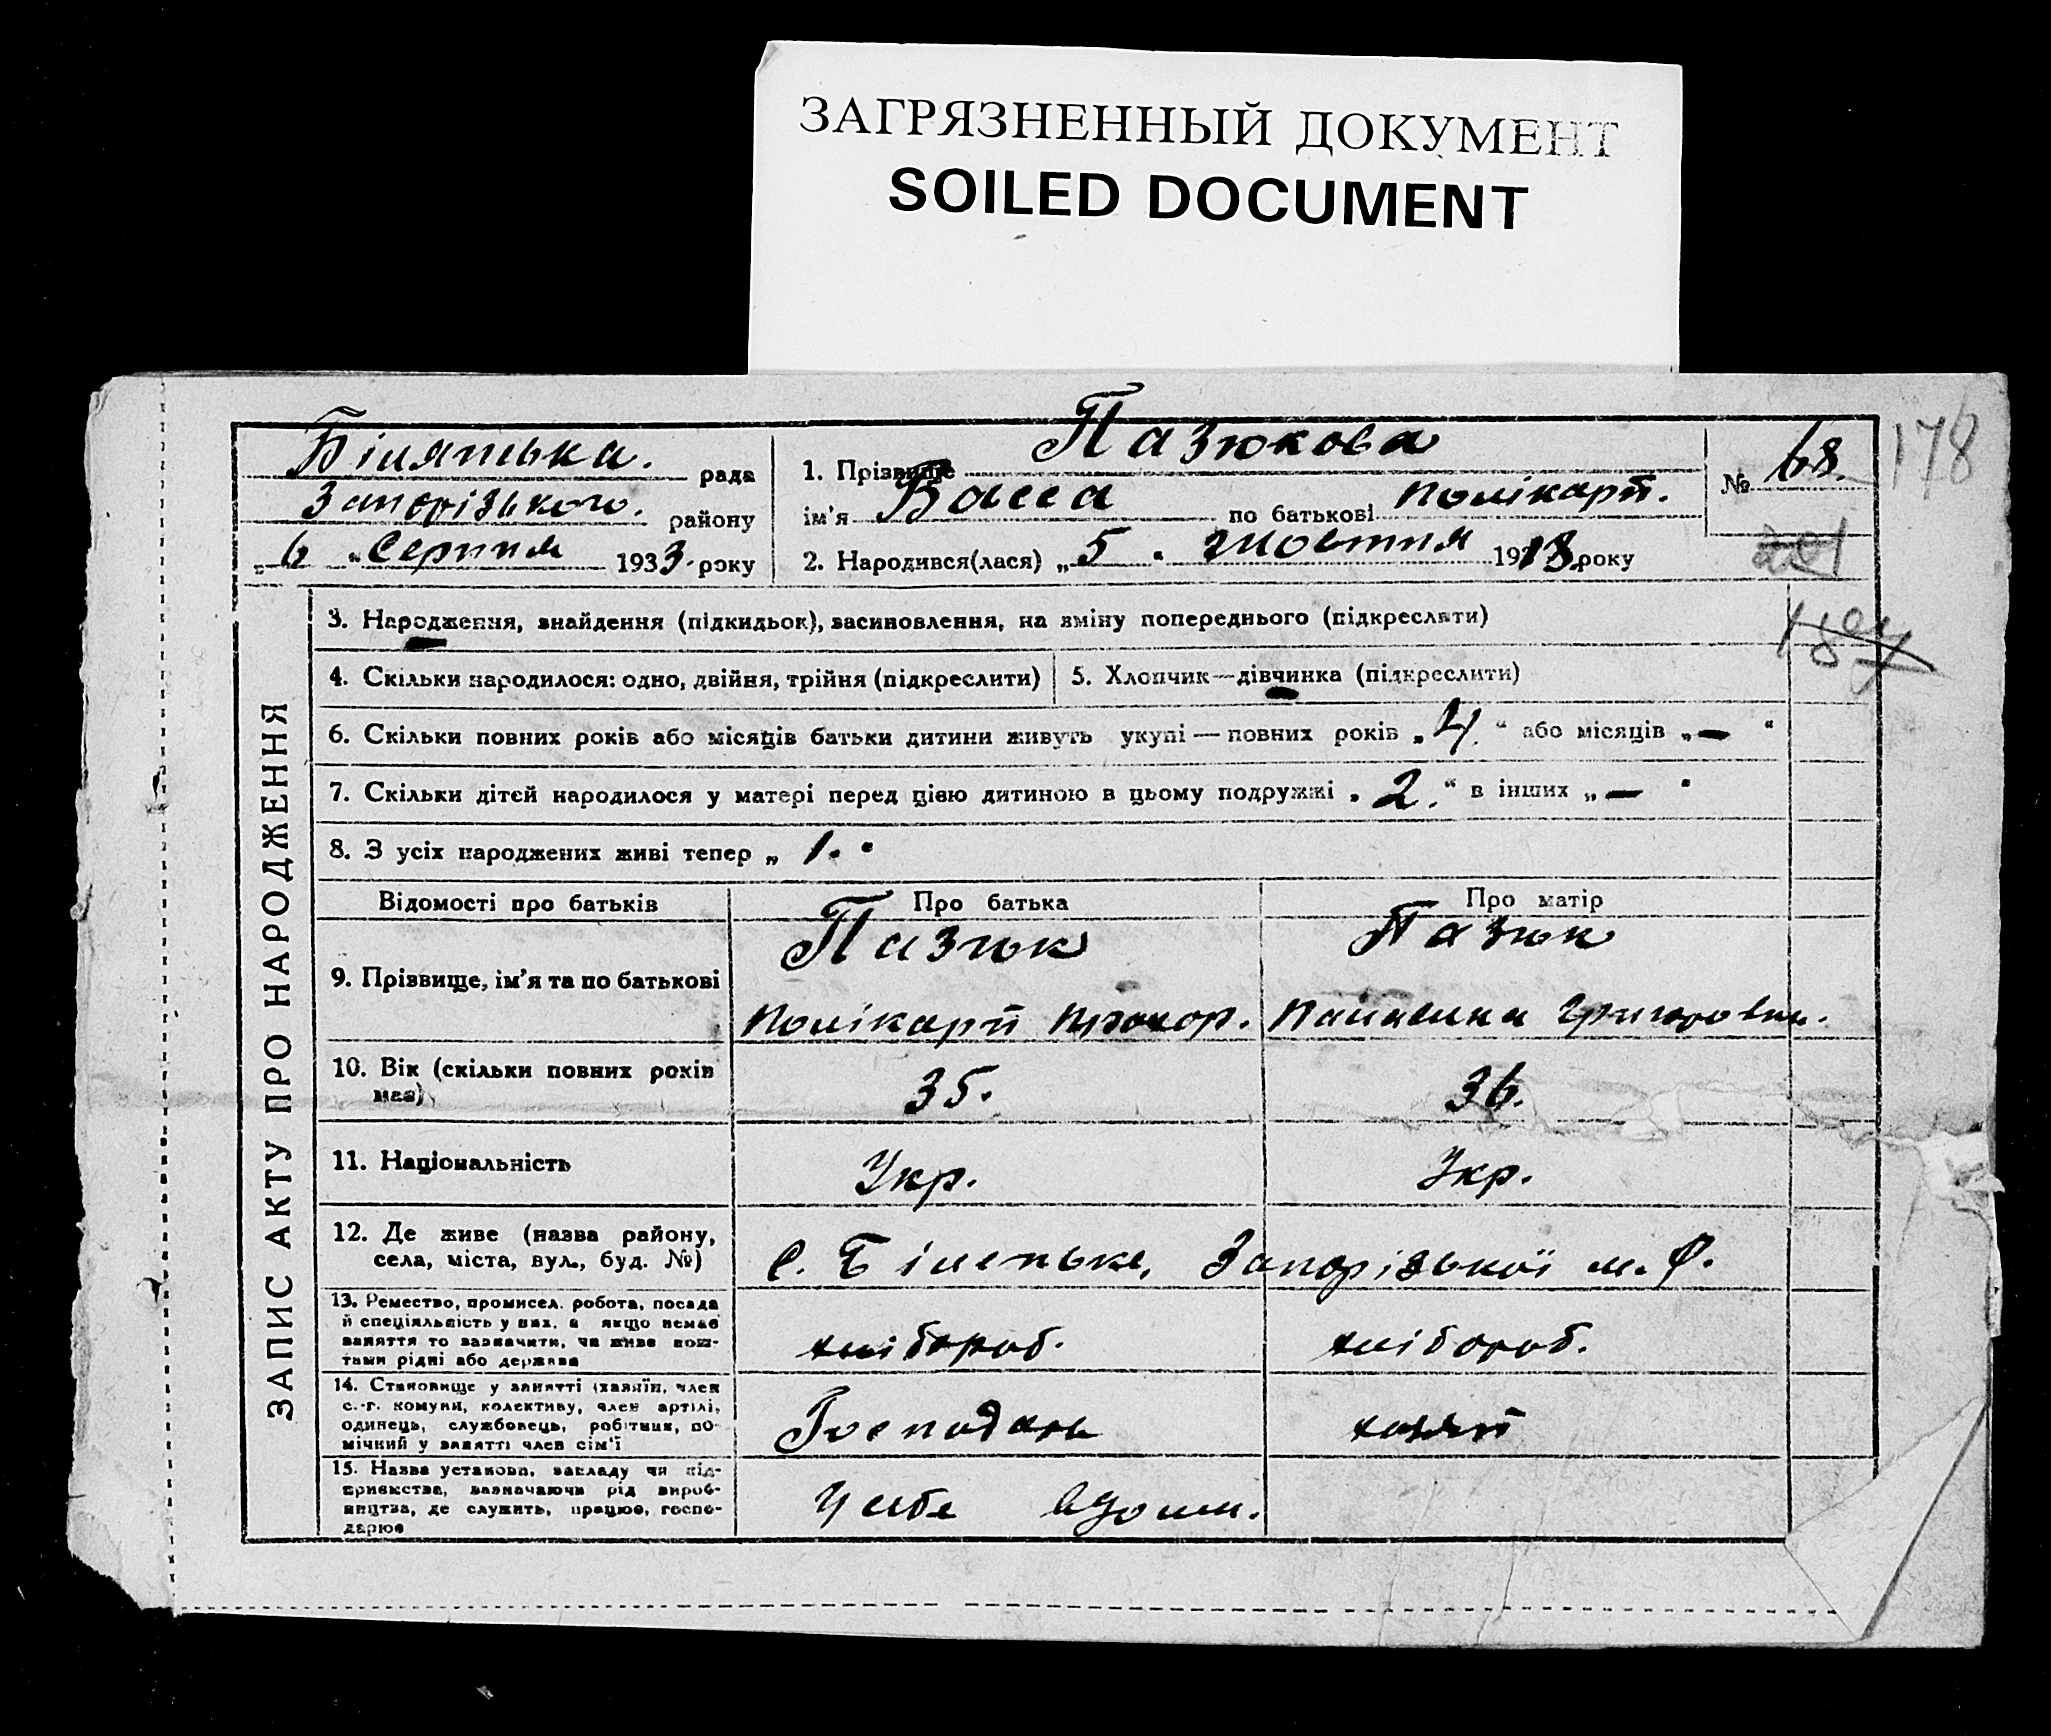 ЗАГРЯЗНЕННЫЙ ДОКУМЕНТ
SOILED DOCUMENT
Пазюкова
Біляцька. рада
1. Прізвище
№ 68.
178
Запорізького. району
ім'я Васса по батькові Полікарп.
„ 6 „ Серпня 1933. року
2. Народився(лася) „ 5 “ жовтня року
ЗАПИС АКТУ ПРО НАРОДЖЕННЯ
3. Народження, знайдення (підкидьок), засиновлення, на зміну попереднього (підкреслити)
4. Скільки народилося: одно, двійня, трійня (підкреслити)
5. Хлопчик—дівчинка (підкреслити)
6. Скільки повних років або місяців батьки дитини живуть укупі — повних років „ 4. “ або місяців „ — “
7. Скільки дітей народилося у матері перед цією дитиною в цьому подружжі „ 2. “ в інших „ — “
8. З усіх народжених живі тепер „ 1. “
Відомості про батьків
Про батька
Про матір
9. Прізвище, ім'я та по батькові
Пазюк
Полікарп Прохор.
Пазюк
Григоровна.
10. Вік (скільки повних років
має)
35.
36.
11. Національність
Укр.
Укр.
12. Де живе (назва району,
села, міста, вул., буд. №)
с. Біленьке, Запорізької м. Р.
13. Ремество, промисел. робота, посада
й спеціяльність у них, а якщо немає
заняття то зазначити, чи живе кош-
тами рідні або держава
хлібороб.
хлібороб.
14. Становище у занятті (хазяїн, член
с.-г. комуни, колективу, член артілі,
одинець, службовець, робітник, по-
мічний у занятті член сім'ї
Господарь
15. Назва установи, закладу чи під-
приємства, зазначаючи рід вироб-
ництва, де служить, працює, госпо-
дарює
У себе вдома.